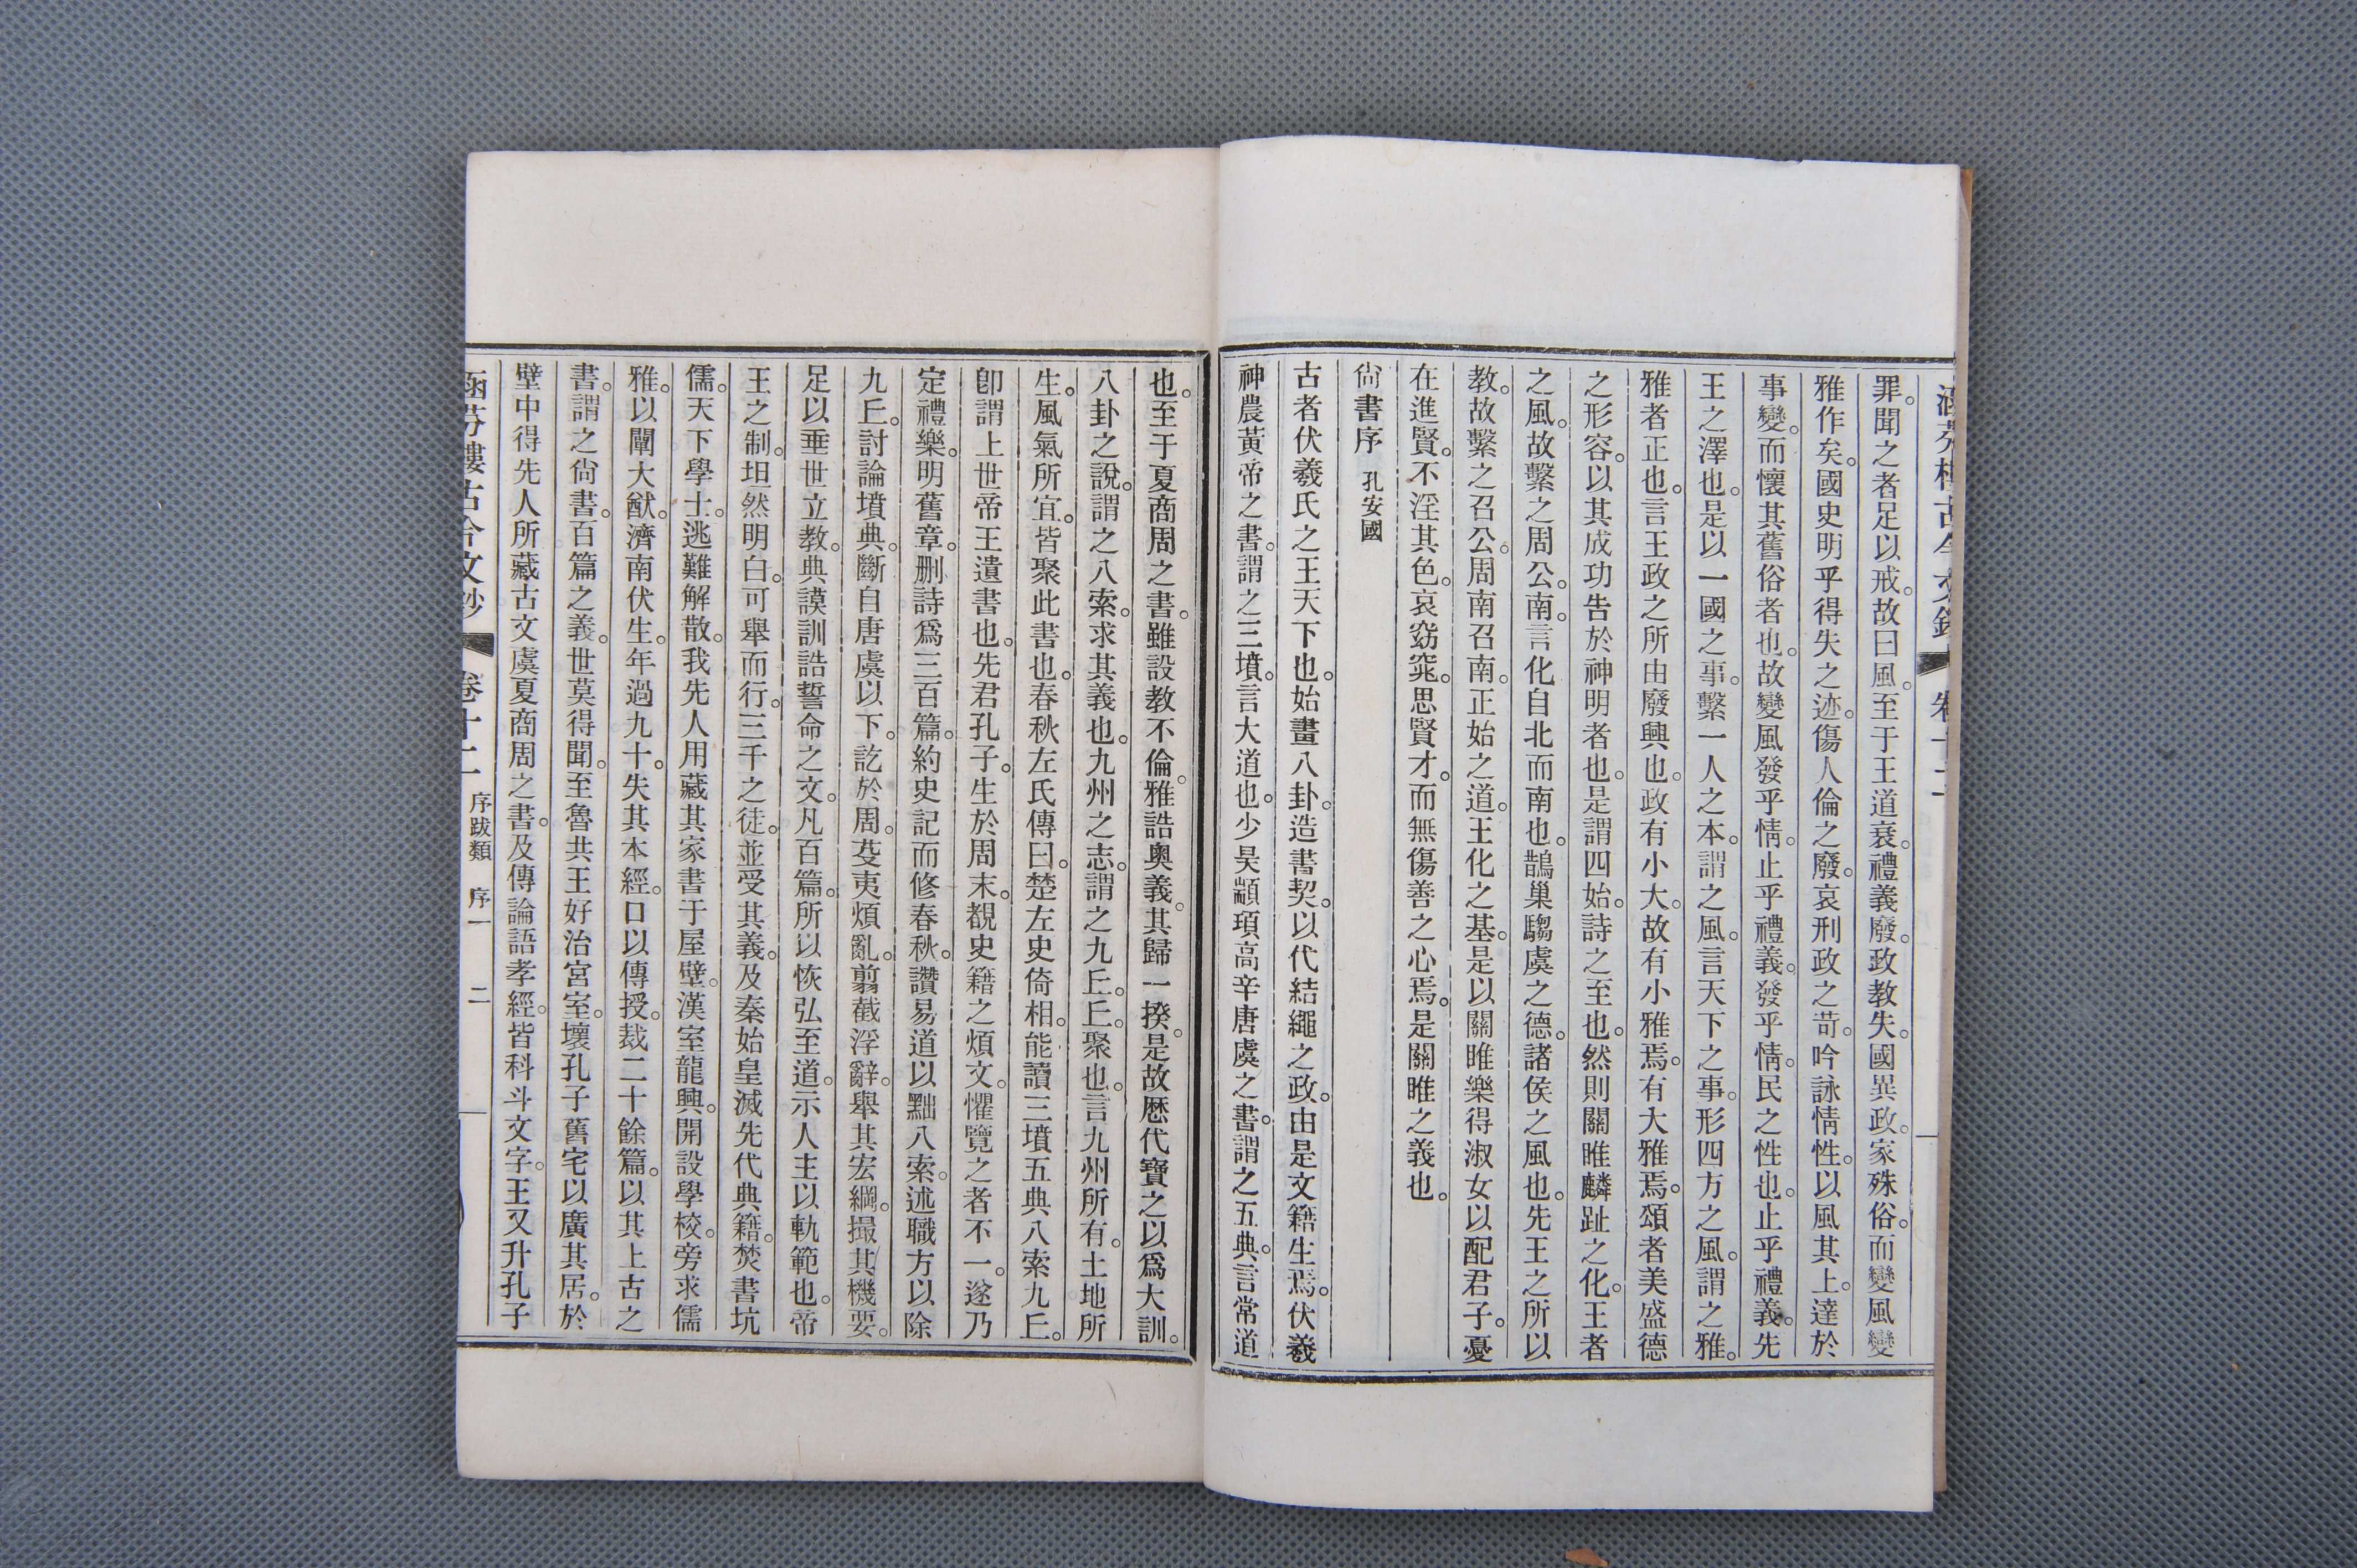 涵芬樓古今文鈔 卷十二
罪。聞之者足以戒。故曰風。至于王道衰。禮義廢。政教失。國異政。家殊俗。而變風變
雅作矣。國史明乎得失之迹。傷人倫之廢。哀刑政之苛。吟詠情性。以風其上。達於
事變。而懷其舊俗者也。故變風發乎情。止乎禮義。發乎情。民之性也。止乎禮義。先
王之澤也。是以一國之事。繫一人之本。謂之風。言天下之事。形四方之風。謂之雅。
雅者正也。言王政之所由廢興也。政有小大。故有小雅焉。有大雅焉。頌者美盛德
之形容。以其成功告於神明者也。是謂四始。詩之至也。然則關睢麟趾之化。王者
之風。故繫之周公。南。言化自北而南也。鵲巢騶虞之德。諸侯之風也。先王之所以
教。故繫之召公。周南召南。正始之道。王化之基。是以關睢樂得淑女以配君子。憂
在進賢。不淫其色。哀窈窕。思賢才。而無傷善之心焉。是關睢之義也。
尙書序 孔安國
古者伏羲氏之王天下也。始畫八卦。造書契。以代結繩之政。由是文籍生焉。伏羲
神農黃帝之書。謂之三墳。言大道也。少昊顓頊高辛唐虞之書。謂之五典。言常道
也。至于夏商周之書。雖設教不倫。雅誥奧義。其歸一揆。是故歷代寶之以爲大訓。
八卦之說。謂之八索。求其義也。九州之志。謂之九丘。丘。聚也。言九州所有。土地所
生。風氣所宜。皆聚此書也。春秋左氏傳曰。楚左史倚相。能讀三墳五典八索九丘。
卽謂上世帝王遺書也。先君孔子。生於周末。覩史籍之煩文。懼覽之者不一。遂乃
定禮樂。明舊章。刪詩爲三百篇。約史記而修春秋。讚易道以黜八索。述職方以除
九丘。討論墳典。斷自唐虞以下。訖於周。芟夷煩亂。翦截浮辭。舉其宏綱。撮其機要。
足以垂世立教。典謨訓誥誓命之文。凡百篇。所以恢弘至道。示人主以軌範也。帝
王之制。坦然明白。可舉而行。三千之徒。並受其義。及秦始皇滅先代典籍。焚書坑
儒。天下學士。逃難解散。我先人用藏其家書于屋壁。漢室龍興。開設學校。旁求儒
雅。以闡大猷。濟南伏生。年過九十。失其本經。口以傳授。裁二十餘篇。以其上古之
書。謂之尙書。百篇之義。世莫得聞。至魯共王好治宮室。壞孔子舊宅以廣其居。於
壁中得先人所藏古文虞夏商周之書。及傳論語孝經。皆科斗文字。王又升孔子
涵芬樓古今文鈔 卷十二 序跋類 序一 二